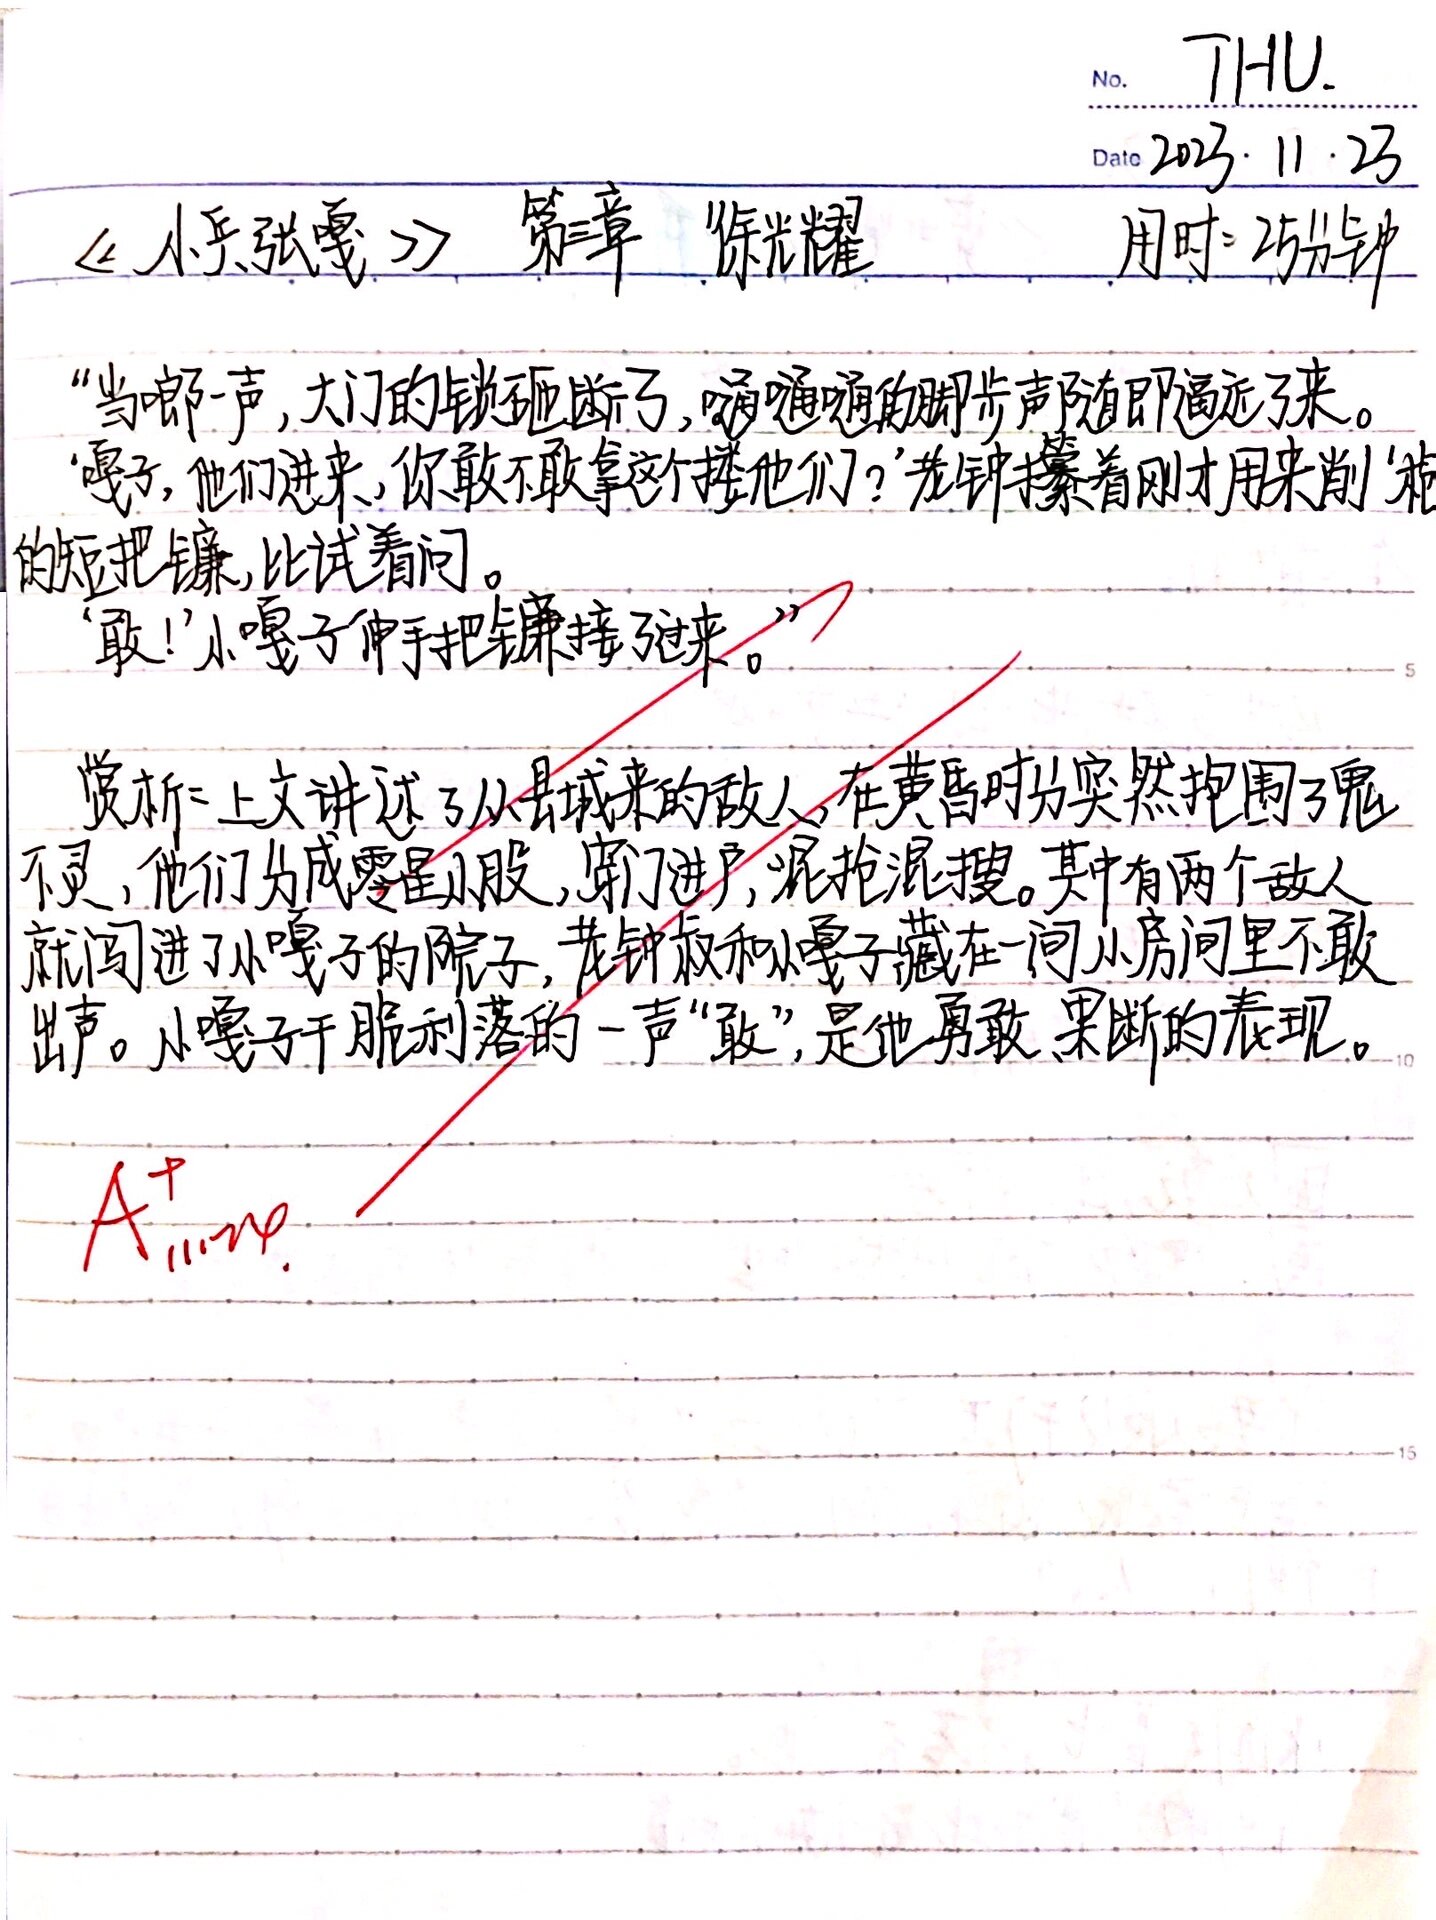 No. THU.
Date 2023.11.23
《小兵张嘎》 第三章 徐光耀 用时:25分钟
“当啷一声,大门的锁砸断了,嗵嗵嗵的脚步声随即逼近了来。
‘嘎子,他们进来,你敢不敢拿这个搂他们?’老钟攥着刚才用来削‘枪
的短把镰,比试着问。
‘敢!’小嘎子伸手把镰接了过来。”
5
赏析:上文讲述了从县城来的敌人,在黄昏时分突然抱围了鬼
不灵,他们分成零星小股,穿门进户,混抢混搜。其中有两个敌人
就闯进了小嘎子的院子,老钟叔和小嘎子藏在一间小房间里不敢
出声。小嘎子干脆利落的一声“敢”,是他勇敢、果断的表现。
10
A+
11.24.
15